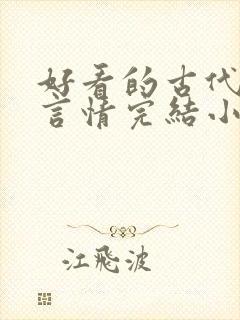 好看的古代
言情完結小
江飛波